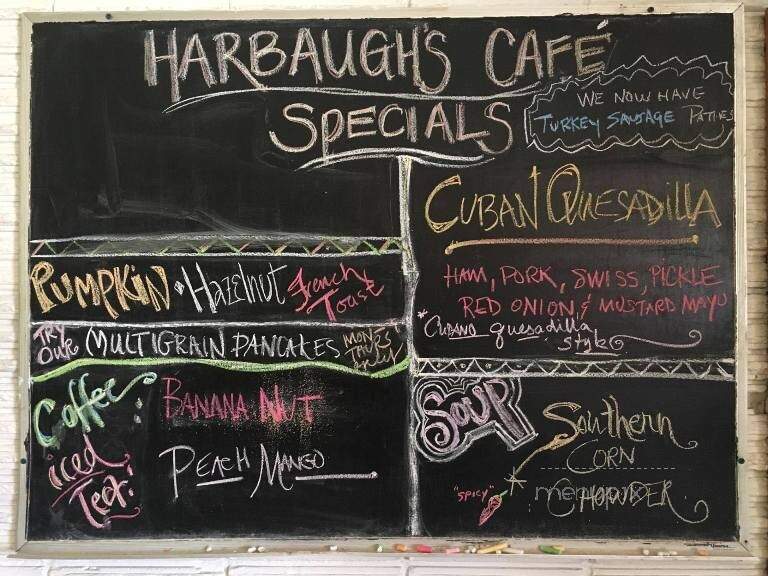 HARBAUGH'S CAFÉ
SPECIALS
WE NOW HAVE
TURKEY SAUSAGE PATTIES
PUMPKIN · Hazelnut French
Toast
TRY
OUR MULTIGRAIN PANCAKES
Coffee
BANANA NUT
iced
Tea!
PEACH MANGO
CUBAN QUESADILLA
HAM, PORK, SWISS, PICKLE
RED ONION, & MUSTARD MAYO
*CUBANO quesadilla
style
SOUP
Southern
CORN
CHOWDER
"SPICY"